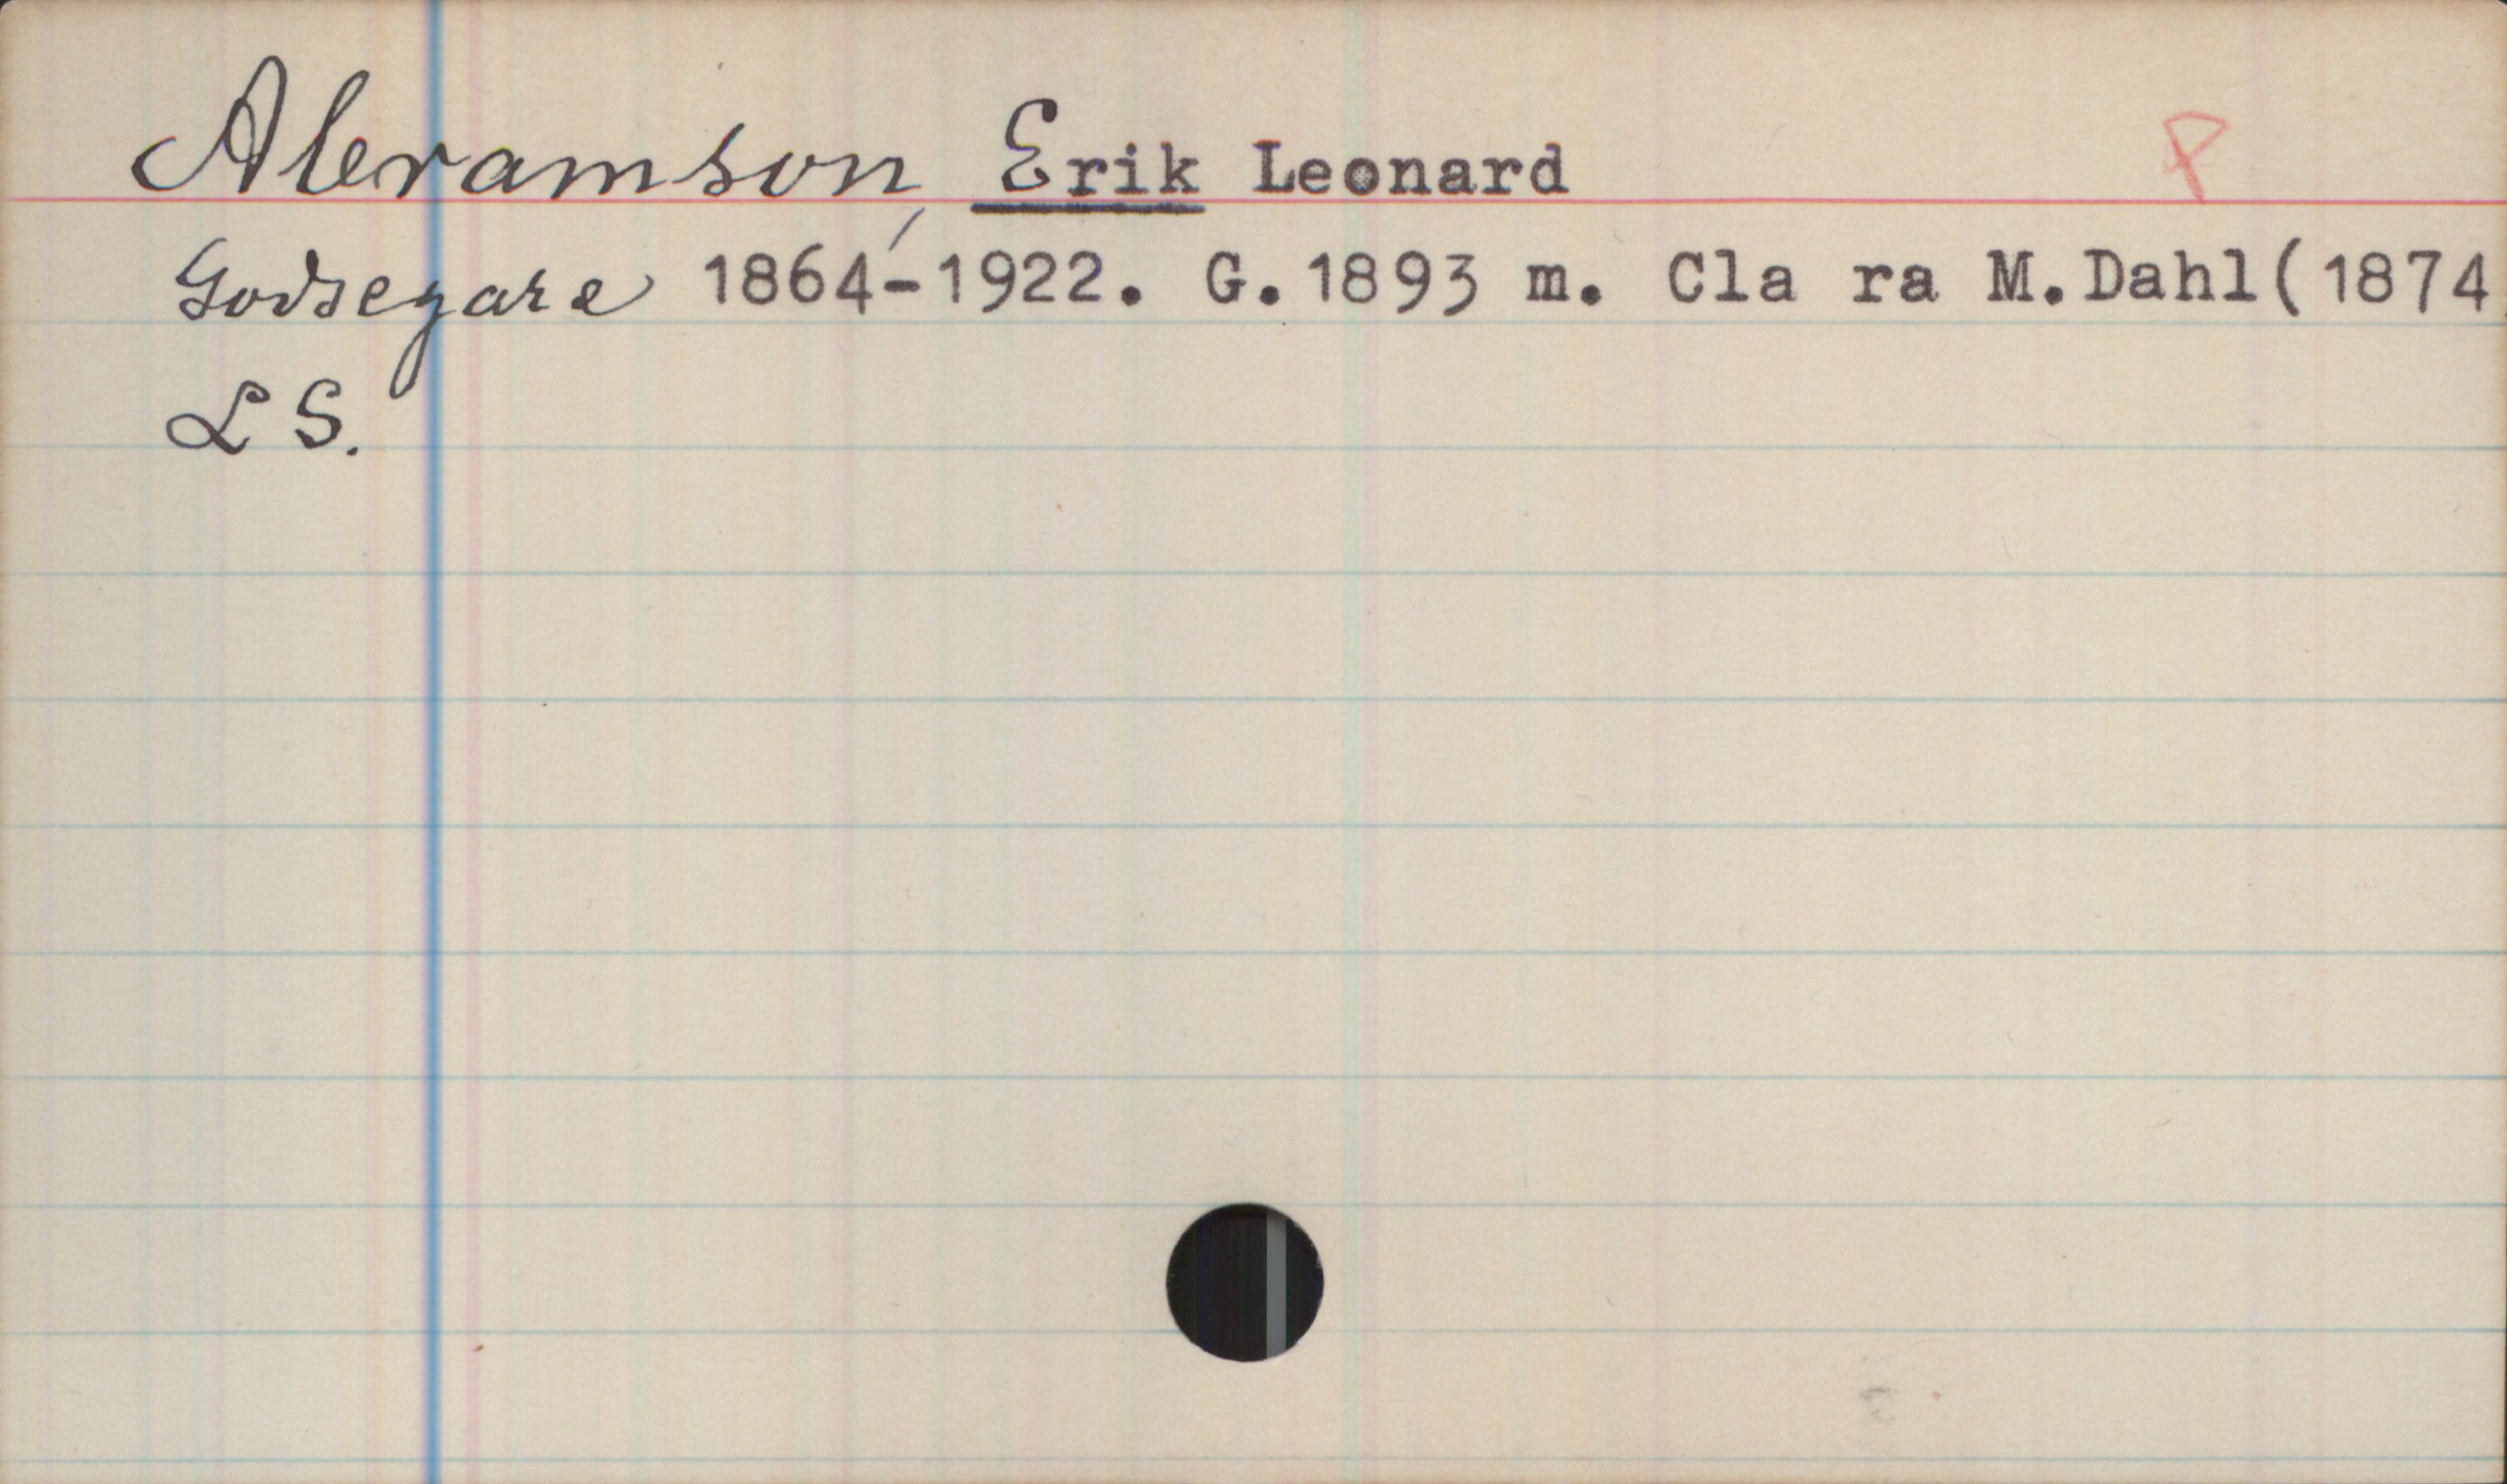 Abramson, Erik Leonard P
Godsegare 1864-1922. G.1893 m. Cla ra M.Dahl(1874
L S.